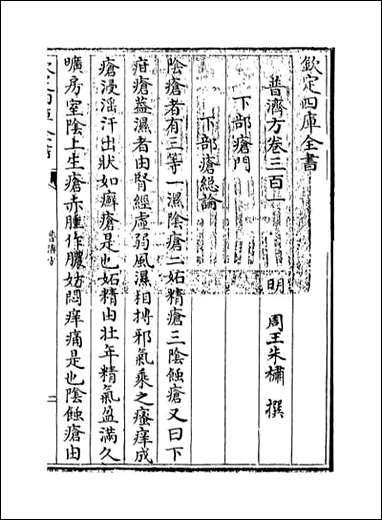 欽定四庫全書
普濟方卷三百一
明 周王朱橚 撰
下部瘡門
下部瘡總論
陰瘡者有三等一濕陰瘡二妬精瘡三陰蝕瘡又曰下
疳瘡蓋濕者由腎經虛弱風濕相搏邪氣乘之瘙痒成
瘡浸淫汗出狀如癬瘡是也妬精由壯年精氣盈滿久
曠房室陰上生瘡赤腫作膿妨悶痒痛是也陰蝕瘡由
普濟方